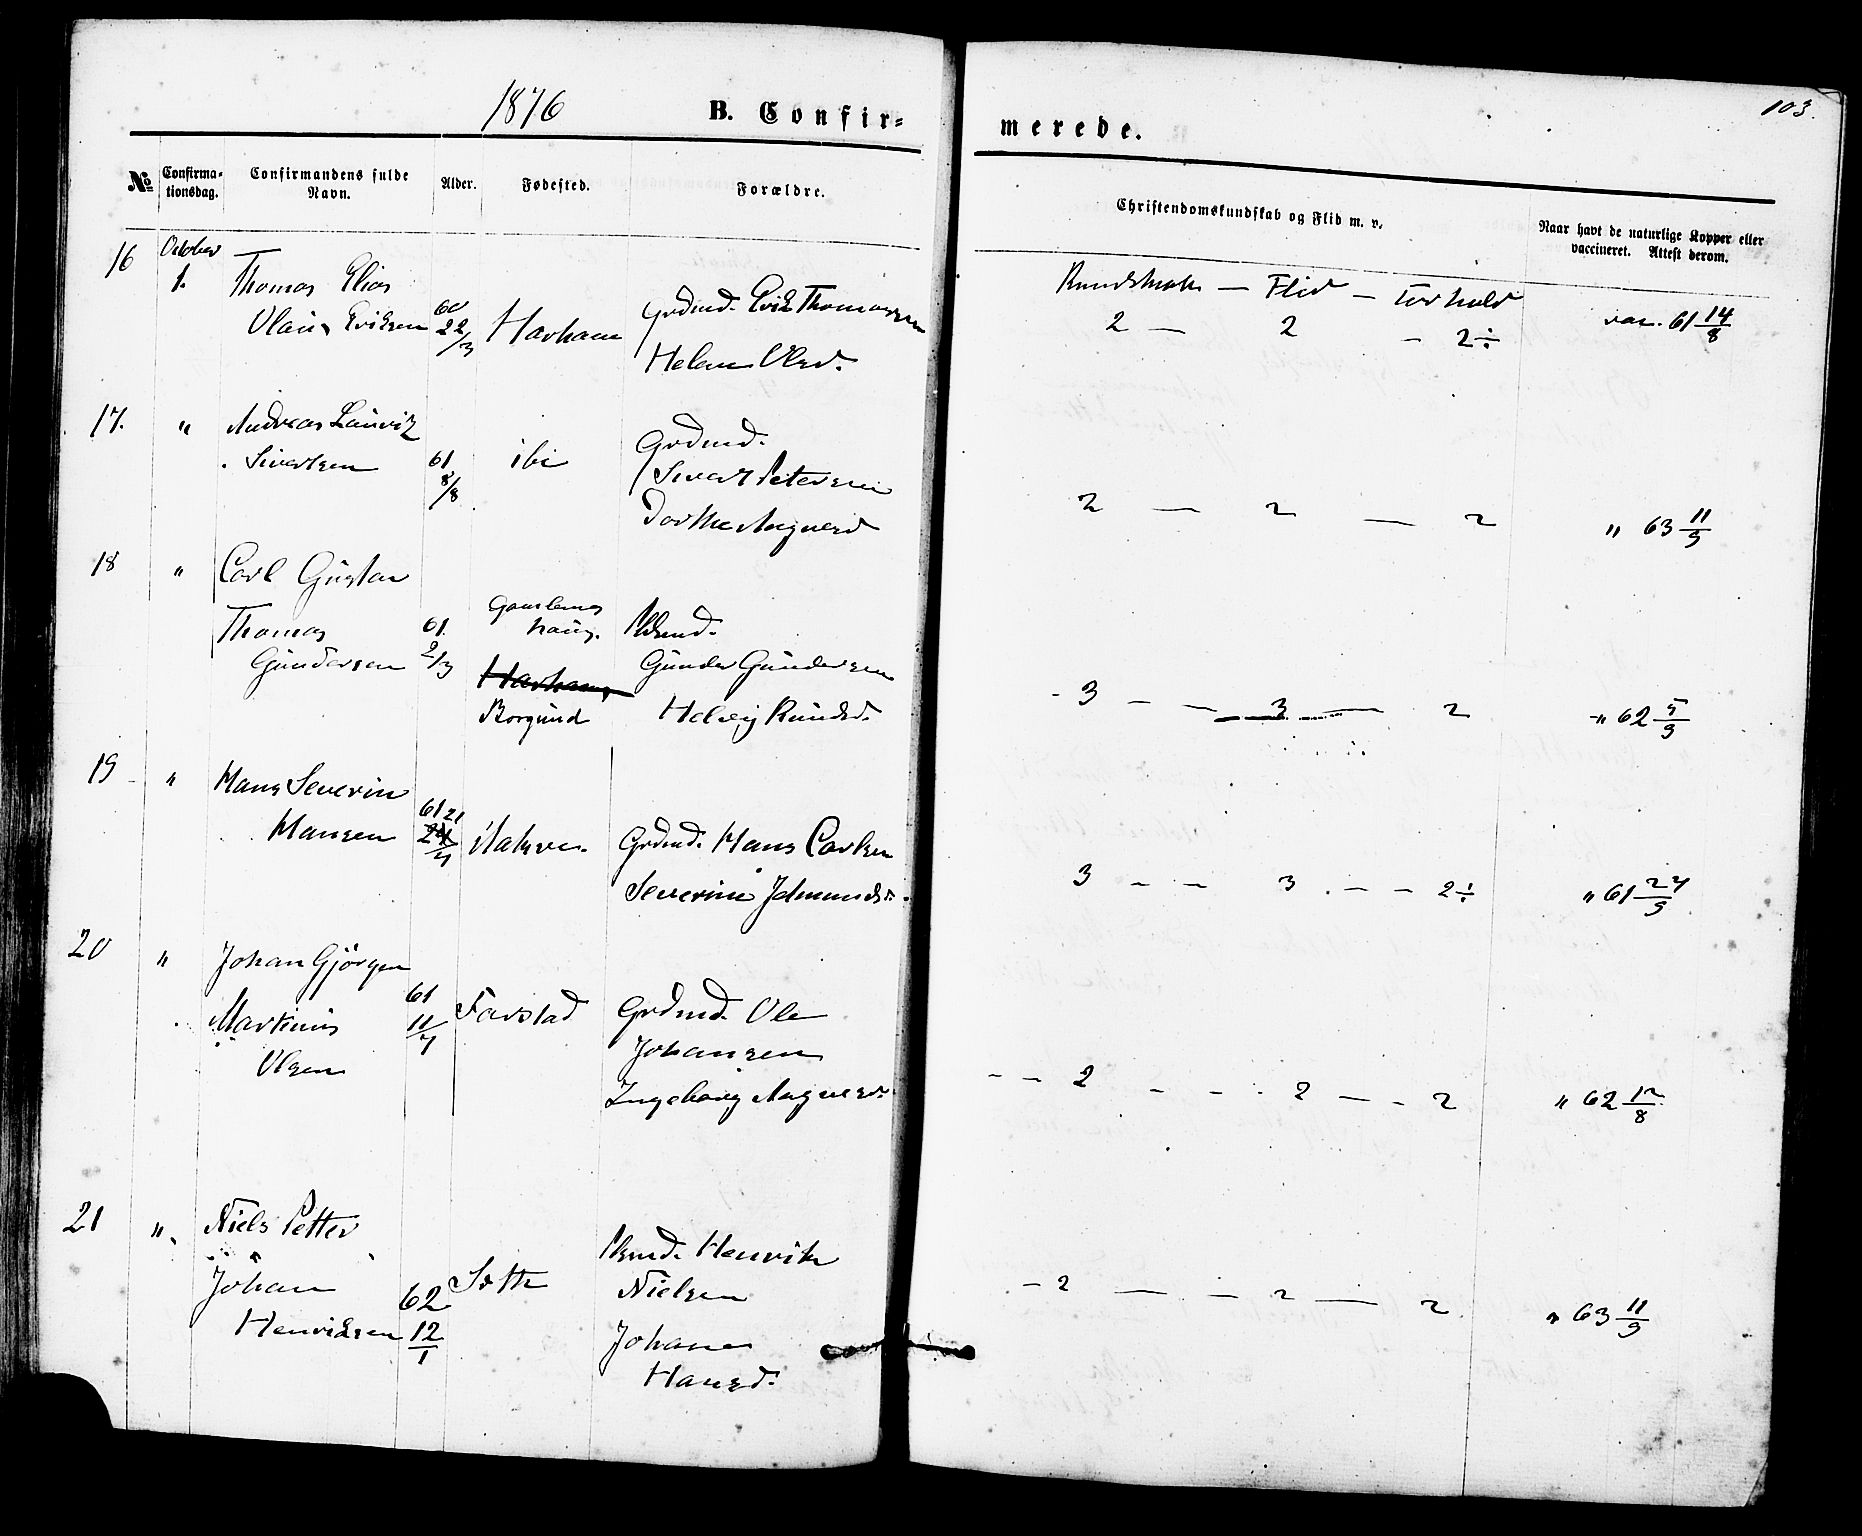 1876
B. Confir-
merede.
103.
No
Confirma-
tionsdag.
Confirmandens fulde
Navn.
Alder.
Fødested.
Forældre.
Christendomskundskab og Flid m. v.
Naar havt de naturlige Kopper eller
vaccineret. Attest derom.
16
October
1.
Thomas Elias
Olaus Eriksen
60
22/3
Harham
Grdmd. Erik Thomassen
Helene Olsd.
Kundskab — Flid — Forhold
2 — 2 — 2÷
vac. 61 14/8
17.
"
Andreas Lauritz
Sivertsen
61
8/8
ibi
Grdmd.
Sivert Petersen
Dorthe Magnesd
2 — 2 — 2
" 63 11/9
18
"
Carl Gustav
Thomas
Gundersen
61.
2/3
haug.
Harham
Borgund
Plsmd.
Gunder Gundersen
Helvig Knudsd.
- 3 — — 3 — 2
" 62 5/9
19
"
Hans Severin
Hansen
61 21
24/4
Grdmd. Hans Carlsen
Severine
3 — — 3 — — 2÷
" 61 24/9
20
"
Johan Gjørgen
Martinus
Olsen
61
11/4
Farstad
Grdmd. Ole
Johansen
Ingeborg Magnesd.
— — 2 — — 2 — — 2
" 62 12/8
21
"
Niels Petter
Johan
Henriksen
62
12/1
Henrik
Nielsen
Johane
Hansd.
— 2 — — 2 — 2
" 63 11/9